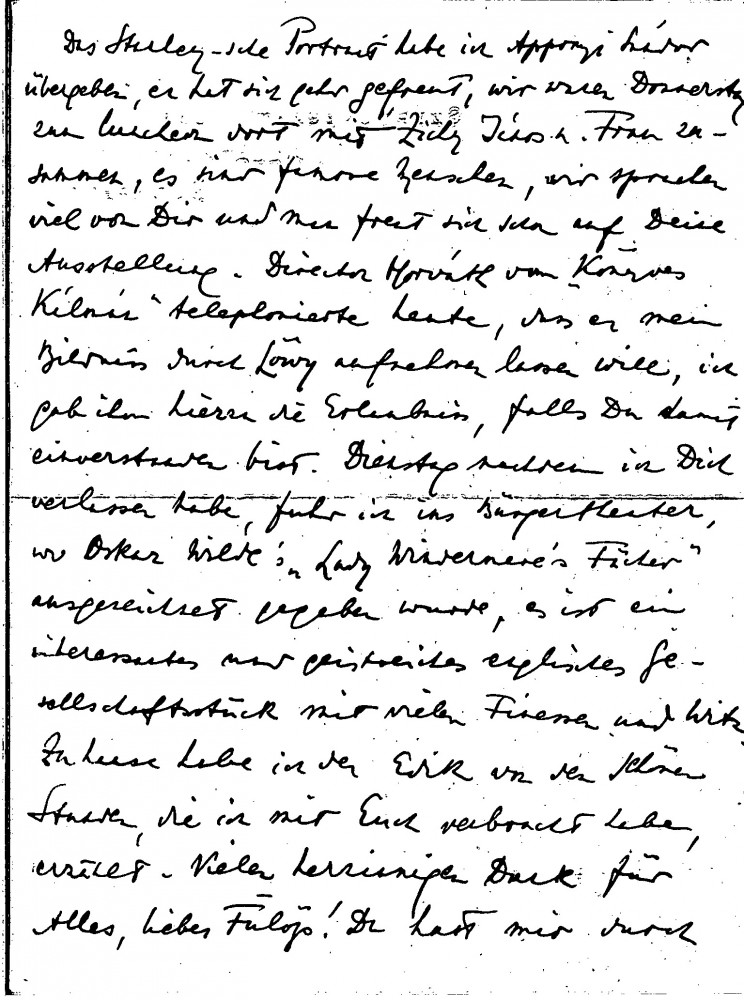 Das Stuley-sche Portrait habe ich Apponyi Sándor
übergeben, er hat sich sehr gefreut, wir waren Donnerstag
zum luncheon dort mit Zichy János u. Frau zu-
sammen, es sind famose Menschen, wir sprachen
viel von Dir und man freut sich schon auf Deine
Ausstellung. Director Horváth vom „Könyves
Kálmán" telephonierte heute, dass er mein
Bildniss durch Löwy aufnehmen lassen will, ich
gab ihm hierzu die Erlaubniss, falls Du damit
einverstanden bist. Dienstag nachdem ich Dich
verlassen habe, fuhr ich ins Bürgertheater,
wo Oskar Wilde's „Lady Windermere's Fächer"
ausgezeichnet gegeben wurde, es ist ein
interessantes und geistreiches englisches Ge-
sellschaftsstück mit vielen Finessen und Witz.
Zu hause habe ich der Edik von den schönen
Stunden, die ich mit Euch verbracht habe,
erzählt. Vielen herzinnigen Dank für
Alles, lieber Fülöp! Du hast mir durch